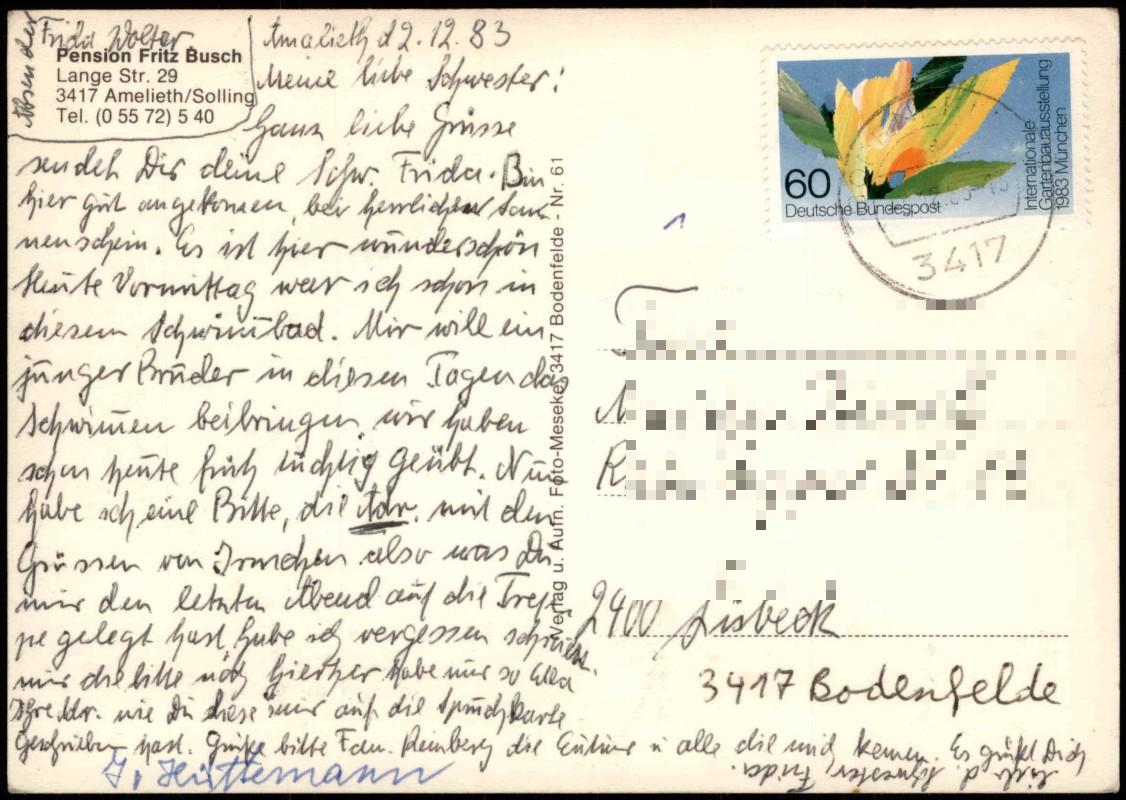 Absender
Frida Wolter
Pension Fritz Busch
Lange Str. 29
3417 Amelieth/Solling
Tel. (0 55 72) 5 40
Amalieth d 2.12.83
Meine liebe Schwester!
Ganz liebe Grüsse
sendet Dir deine Schw. Frida. Bin
hier gut angekommen, bei herrlichem Son
nenschein. Es ist hier wunderschön
Heute Vormittag war ich schon in
diesem Schwimmbad. Mir will ein
junger Bruder in diesen Tagen das
Schwimmen beibringen wir haben
schon heute früh tüchtig geübt. Nun
habe ich eine Bitte, die Adr. mit den
Grüssen von Irmchen also was Du
mir den letzten Abend auf die Trep
pe gelegt hast, habe ich vergessen
mir die bitte noch hierher habe nur so
Ihre Adr. wie Du diese mir auf die Spruchkarte
Geschrieben hast. Grüße bitte Fam. Reinberg die u alle die mich kennen. Es grüßt Dich
d. Schwester Frida.
J. Hüttemann
Verlag u. Aufn. Foto-Meseke, 3417 Bodenfelde - Nr. 61
60
Deutsche Bundespost
Internationale
Gartenbauausstellung
1983 München
3417
2400 Lübeck
3417 Bodenfelde